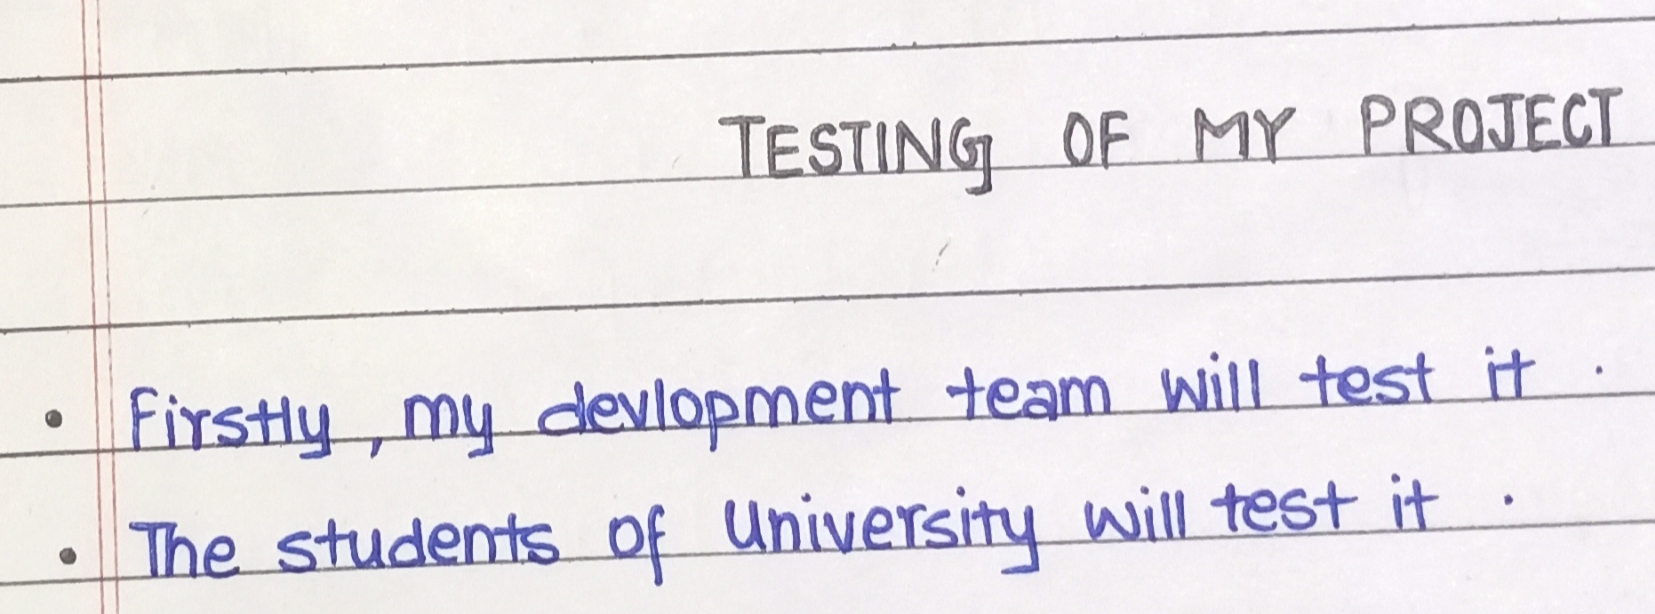 TESTING OF MY PROJECT
• Firstly, my devlopment team will test it .
• The students of University will test it .